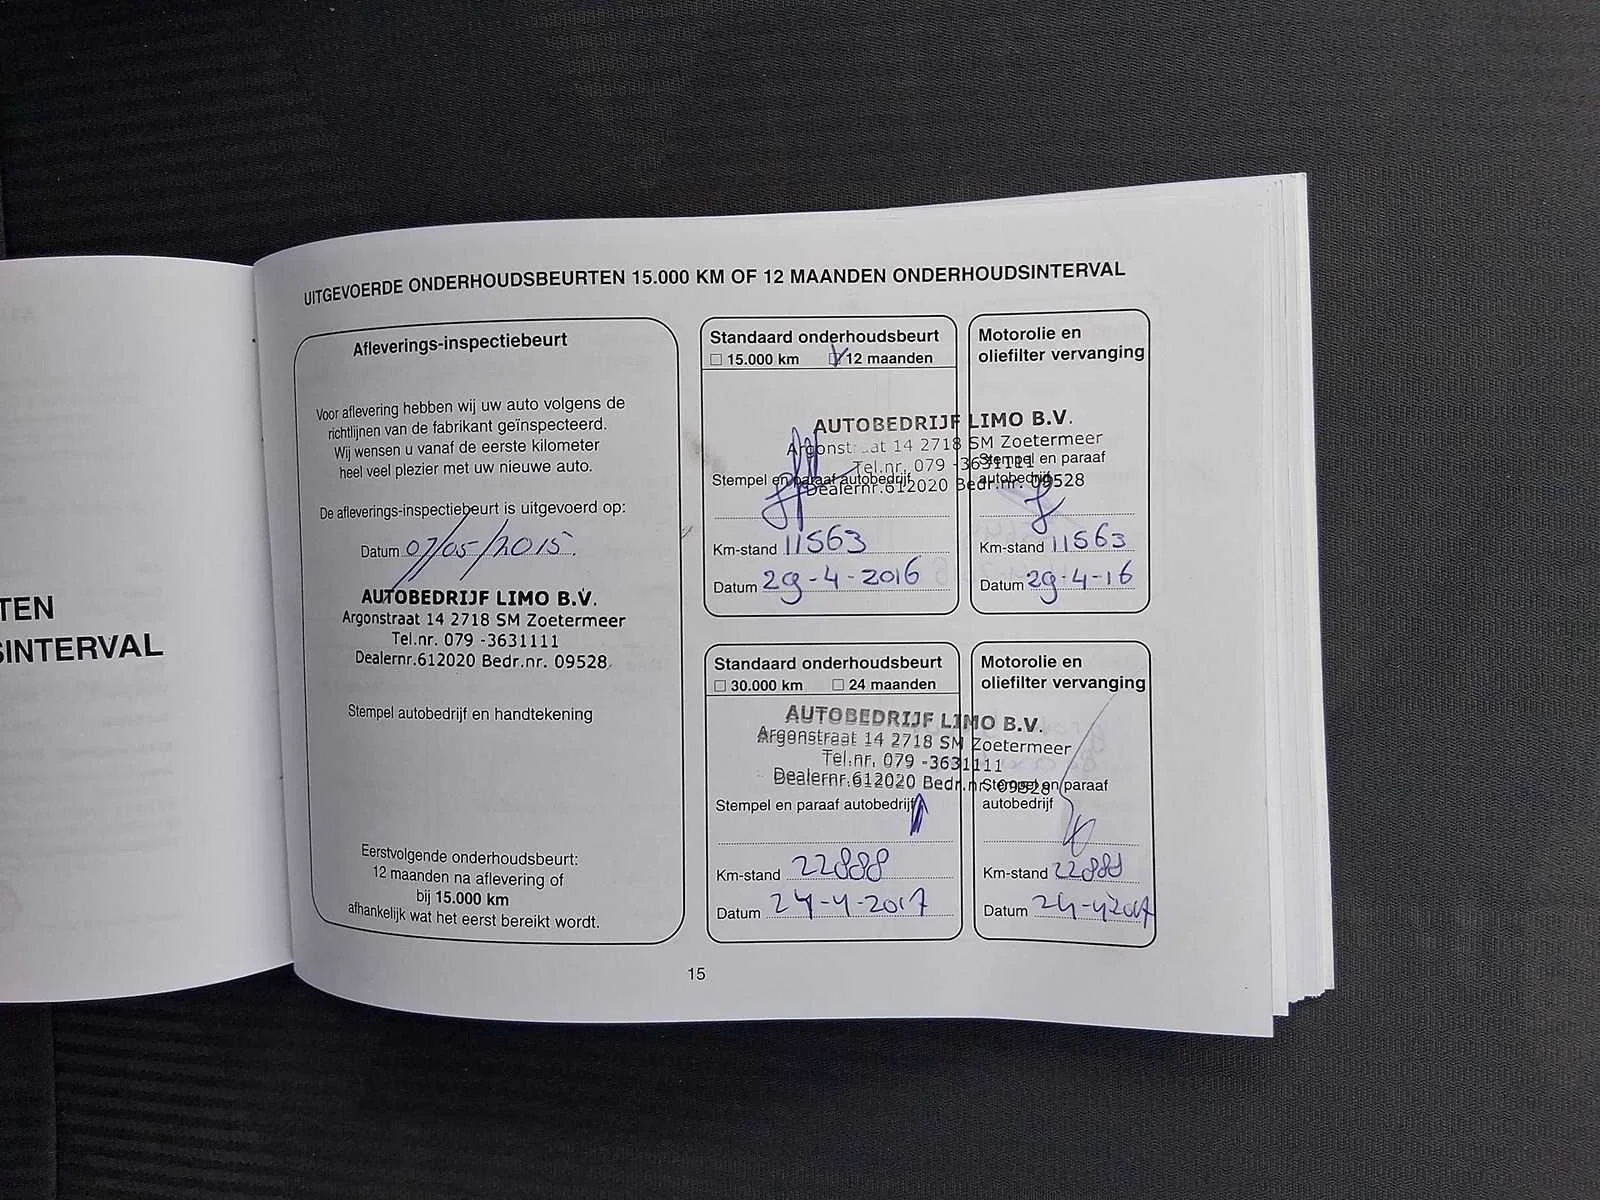 TEN
SINTERVAL
UITGEVOERDE ONDERHOUDSBEURTEN 15.000 KM OF 12 MAANDEN ONDERHOUDSINTERVAL
Afleverings-inspectiebeurt
Voor aflevering hebben wij uw auto volgens de
richtlijnen van de fabrikant geïnspecteerd.
Wij wensen u vanaf de eerste kilometer
heel veel plezier met uw nieuwe auto.
De afleverings-inspectiebeurt is uitgevoerd op:
Datum 07/05/2015.
AUTOBEDRIJF LIMO B.V.
Argonstraat 14 2718 SM Zoetermeer
Tel.nr. 079 -3631111
Dealernr.612020 Bedr.nr. 09528
Stempel autobedrijf en handtekening
Eerstvolgende onderhoudsbeurt:
12 maanden na aflevering of
bij 15.000 km
afhankelijk wat het eerst bereikt wordt.
Standaard onderhoudsbeurt
15.000 km 12 maanden
Motorolie en
oliefilter vervanging
AUTOBEDRIJF LIMO B.V.
Argonstraat 14 2718 SM Zoetermeer
Tel.nr. 079 -3631111
Dealernr.612020 Bedr.nr. 09528
Stempel en paraaf autobedrijf
Km-stand 11563
Datum 29-4-2016
Stempel en paraaf
autobedrijf
Km-stand 11563
Datum 29-4-16
Standaard onderhoudsbeurt
30.000 km 24 maanden
Motorolie en
oliefilter vervanging
AUTOBEDRIJF LIMO B.V.
Argonstraat 14 2718 SM Zoetermeer
Tel.nr. 079 -3631111
Dealernr.612020 Bedr.nr. 09528
Stempel en paraaf autobedrijf
Km-stand 22888
Datum 24-4-2017
Stempel en paraaf
autobedrijf
Km-stand 22888
Datum 24-4-2017
15